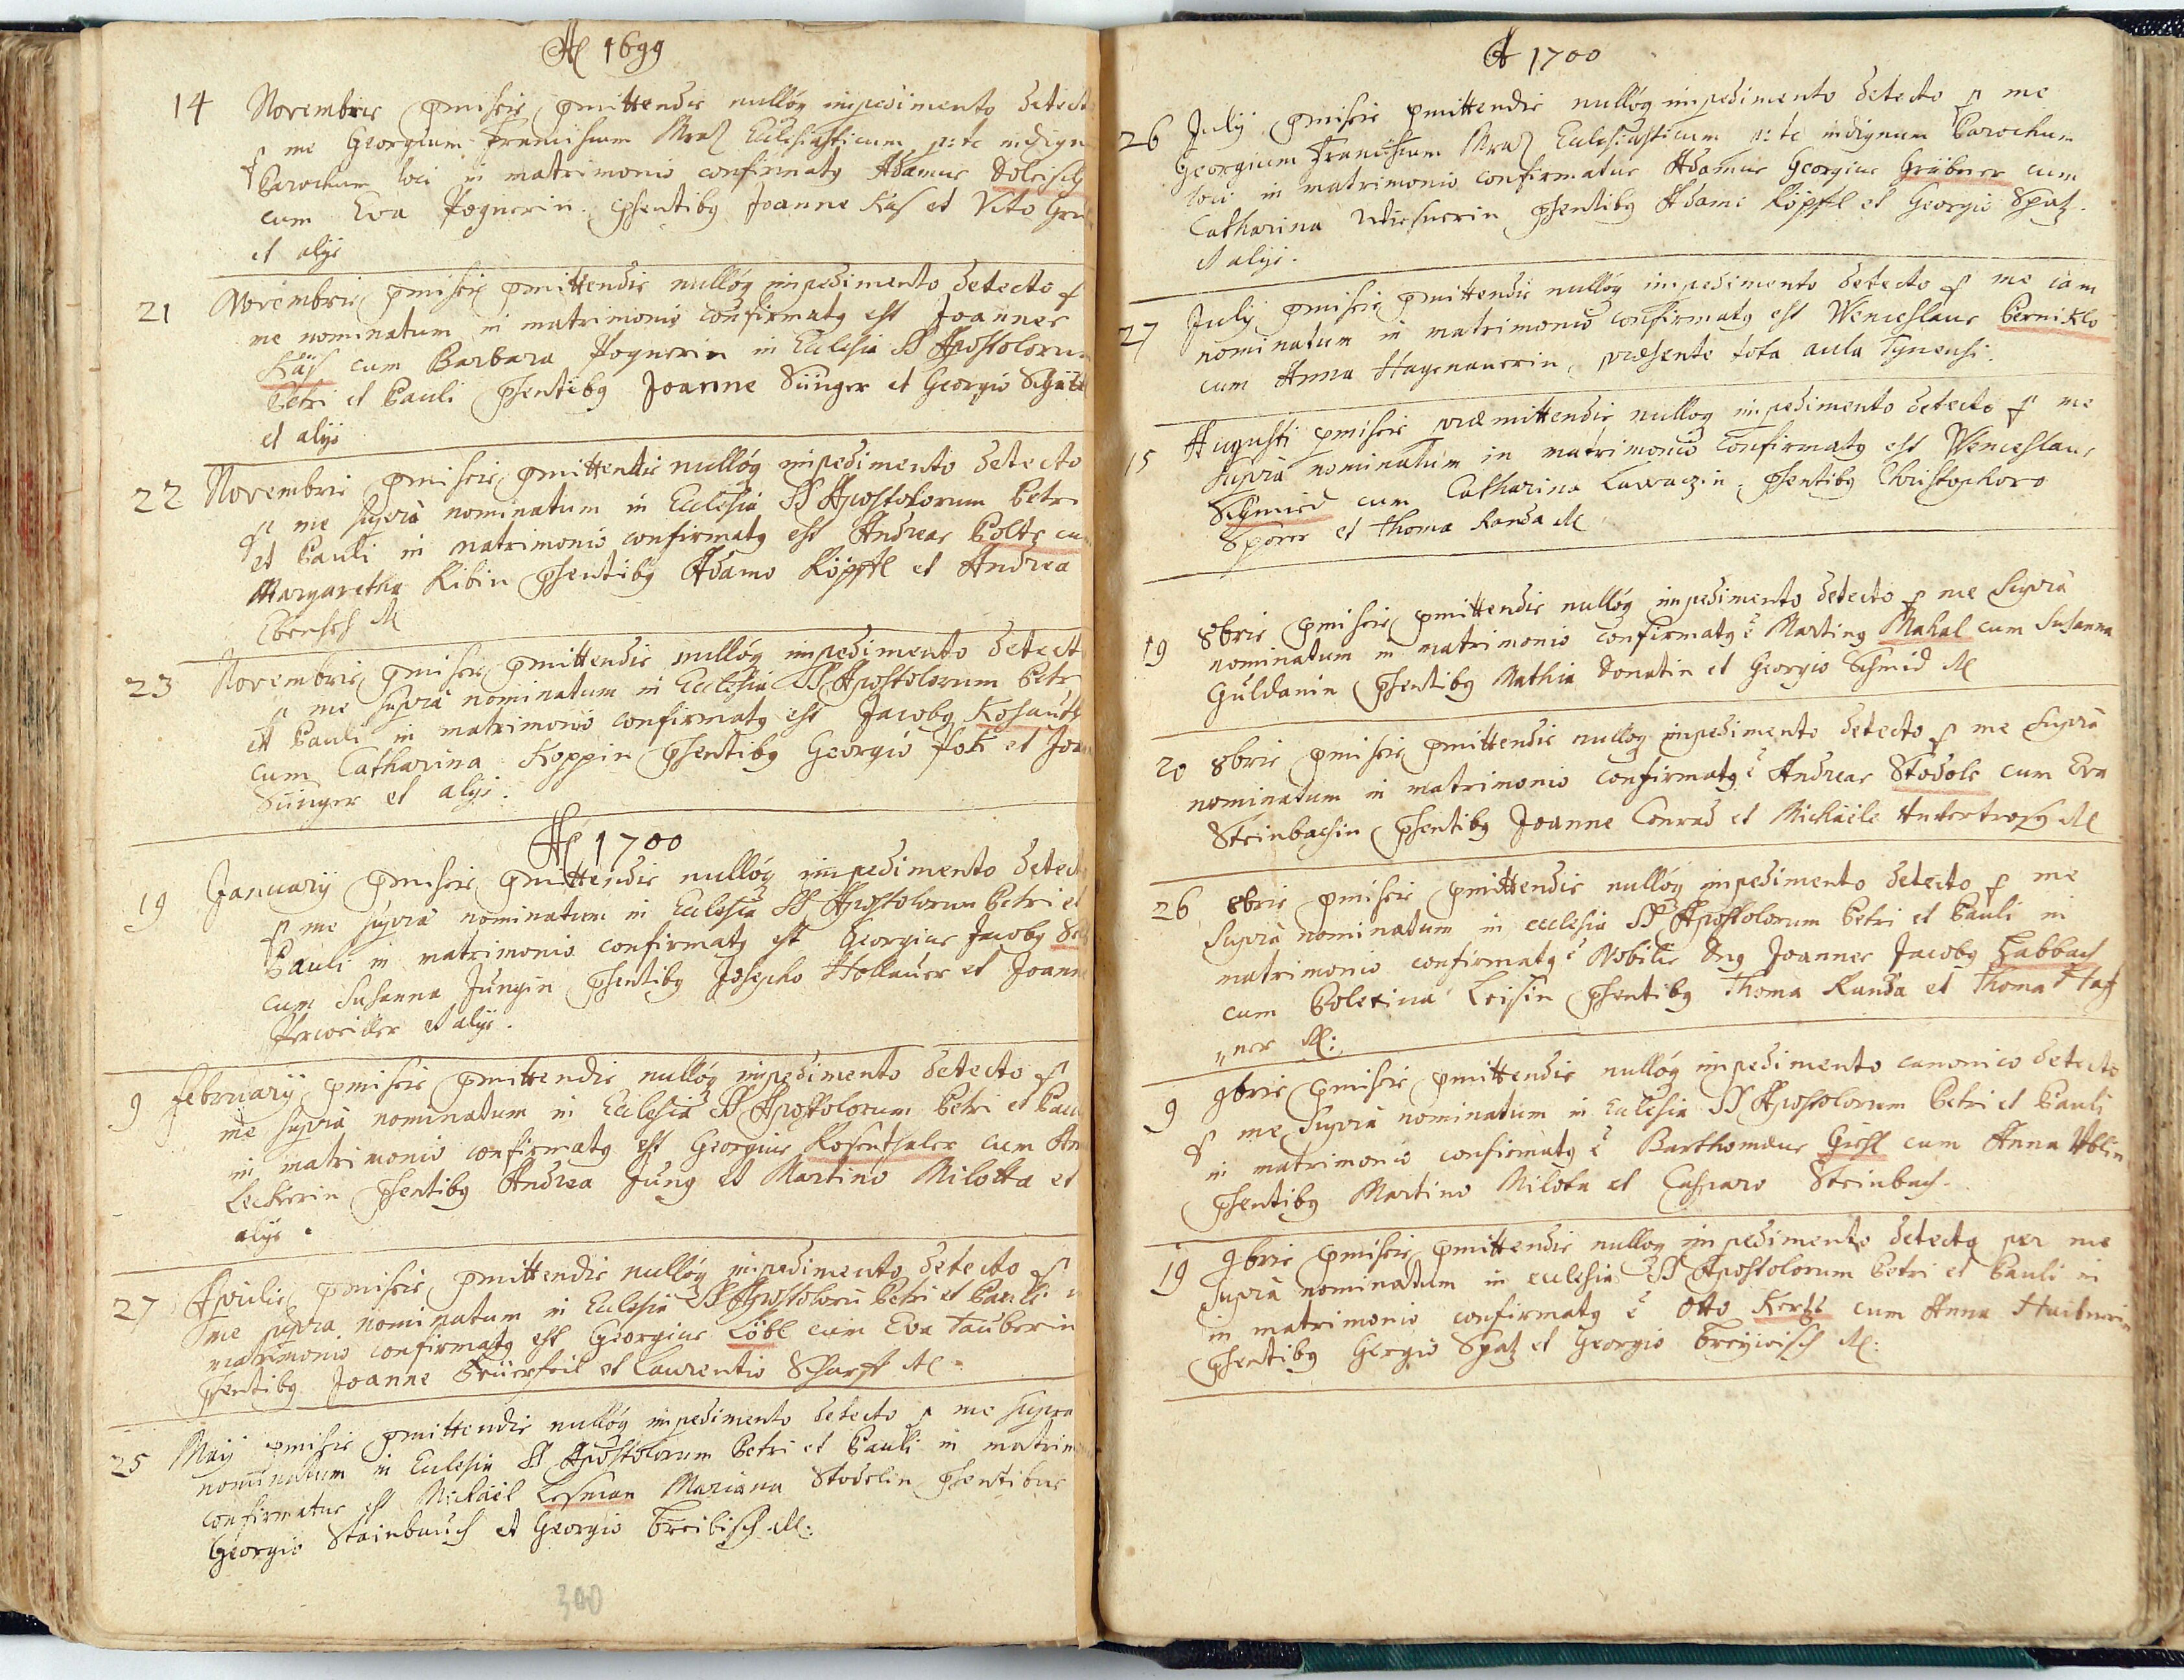 A 1699
14 Novembris pmissis pmittendis nullóq impedimento detect
p me Georgium Franciscum Mraz Ecclesiasticum p: tc indign
Parochum loci in matrimonio confirmatq Adamus Doleisch
cum Eva Pognerin. psentibq Joanne Käs et Vito
et alijs
21 Novembris pmissis pmittendis nullóq impedimento detecto p
me nominatum in matrimonio confirmatq est Joannes
Käs cum Barbara Pognerin in Ecclesia SS Apostolorum
Petri et Pauli psentibq Joanne Singer et Georgio
et alijs
22 Novembris pmissis pmittendis nullóq impedimento detecto
p me suprà nominatum in Ecclesia SS Apostolorum Petri
et Pauli in matrimonio confirmatq est Andreas Polts cu
Margaretha Kibin psentibq Adamo Köpptl et Andrea
23 Novembris pmissis pmittendis nullóq impedimento detect
p me suprà nominatum in Ecclesia SS Apostolorum Petr
et Pauli in matrimonio confirmatq est Jacobq Kohaut
cum Catharina Koppin psentibq Georgio et Joan
Singer et alijs.
A 1700
19 Januarij pmissis pmittendis nullóq impedimento detect
p me suprà nominatum in Ecclesia SS Apostolorum Petri et
Pauli in matrimonio confirmatq est Georgius Jacobq
cum Susanna Jungin psentibq Josepho Hollauer et Joann
et alijs.
9 February pmissis pmittendis nullóq impedimento detecto p
me suprà nominatum in Ecclesia SS Apostolorum Petri et Pau
in matrimonio confirmatq est Georgius Rosenthaler cum An
Leckerin psentibq Andrea Jung et Martino Milotta et
alijs.
27 Aprilis pmissis pmittendis nullóq impedimento detecto p
me supra nominatum in Ecclesia SS Apostolorū Petri et Pauli i
matrimonio confirmatq est Georgius Löbl cum Eva Tauberin
psentibq Joanne et Laurentio Scharff
25 Maij pmissis pmittendis nullóq impedimento detecto p me supra
nominatum in Ecclesia SS Apostolorum Petri et Pauli in matrim
confirmatus est Michaël Lehman Mariana Stodelin psentibus
Georgio Stainbauch et Georgio Freibisch
300
A 1700
26 July pmissis pmittendis nullóq impedimento detecto p me
Georgium Franciscum Mraz Ecclesiasticum p: tc indignum Parochum
loci in matrimonio confirmatus Adamus Georgius Grübner cum
Catharina Wiesnerin psentibq Adamo Köpptl et Georgio Spatz.
et alijs.
27 July pmissis pmittendis nullóq impedimento detecto p me iam
nominatum in matrimonio confirmatq est Wenceslaus Perniklo
cum Anna Hagenauerin, præsente tota aula Tynensi.
15 Augusti pmissis præmittendis nulloq impedimento detecto p me
suprà nominatum in matrimonio confirmatq est Wenceslaus
Schmied cum Catharina psentibq Christophoro
Sporer et Thoma Randa
19 8bris pmissis pmittendis nullóq impedimento detecto p me Suprà
nominatum in matrimonio confirmatq ē Martinq Mahal cum Susanna
Guldanin psentibq Mathia Donatin et Georgio Schmid
20 8bris pmissis pmittendis nullóq impedimento detecto p me Suprà
nominatum in matrimonio confirmatq ē Andreas Stodole cum Eva
Steinbachin psentibq Joanne Conrad et Michaële
26 8bris pmissis pmittendis nullóq impedimento detecto p me
Suprà nominatum in ecclesia SS Apostolorum Petri et Pauli in
matrimonio confirmatq ē Nobilis Dnq Joannes Jacobq Habbach
cum Polexina Leisin psentibq Thoma Randa et Thoma Hag
"ner
9 9bris pmissis pmittendis nullóq impedimento canonico detecto
p me Suprà nominatum in Ecclesia SS Apostolorum Petri et Pauli
in matrimonio confirmatq ē Bartholomæus Gröhl cum Anna
psentibq Martino Milota et Casparo Steinbach.
19 9bris pmissis pmittendis nulloq impedimento detecto per me
Suprà nominatum in ecclesia SS Apostolorum Petri et Pauli in
in matrimonio confirmatq ē Otto cum Anna Huibnerin
psentibq Georgio Spatz et Georgio Freywisch